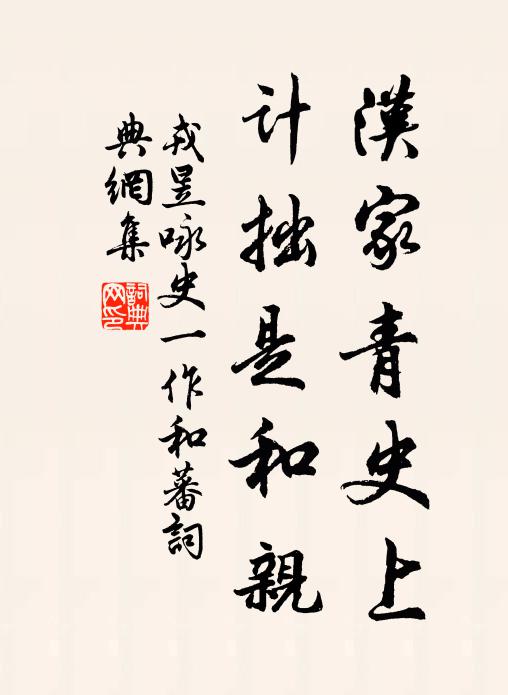 漢家青史上
计拙是和親
戎昱咏史一作和蕃詞
典網集
詞典网印